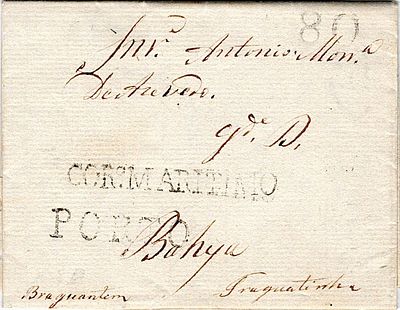 80
Snr. Antonio Mon.a
De Azevedo.
g.de D.
COR.MARITIMO
PORTO
Bahya
Braguantem Fraguatinha